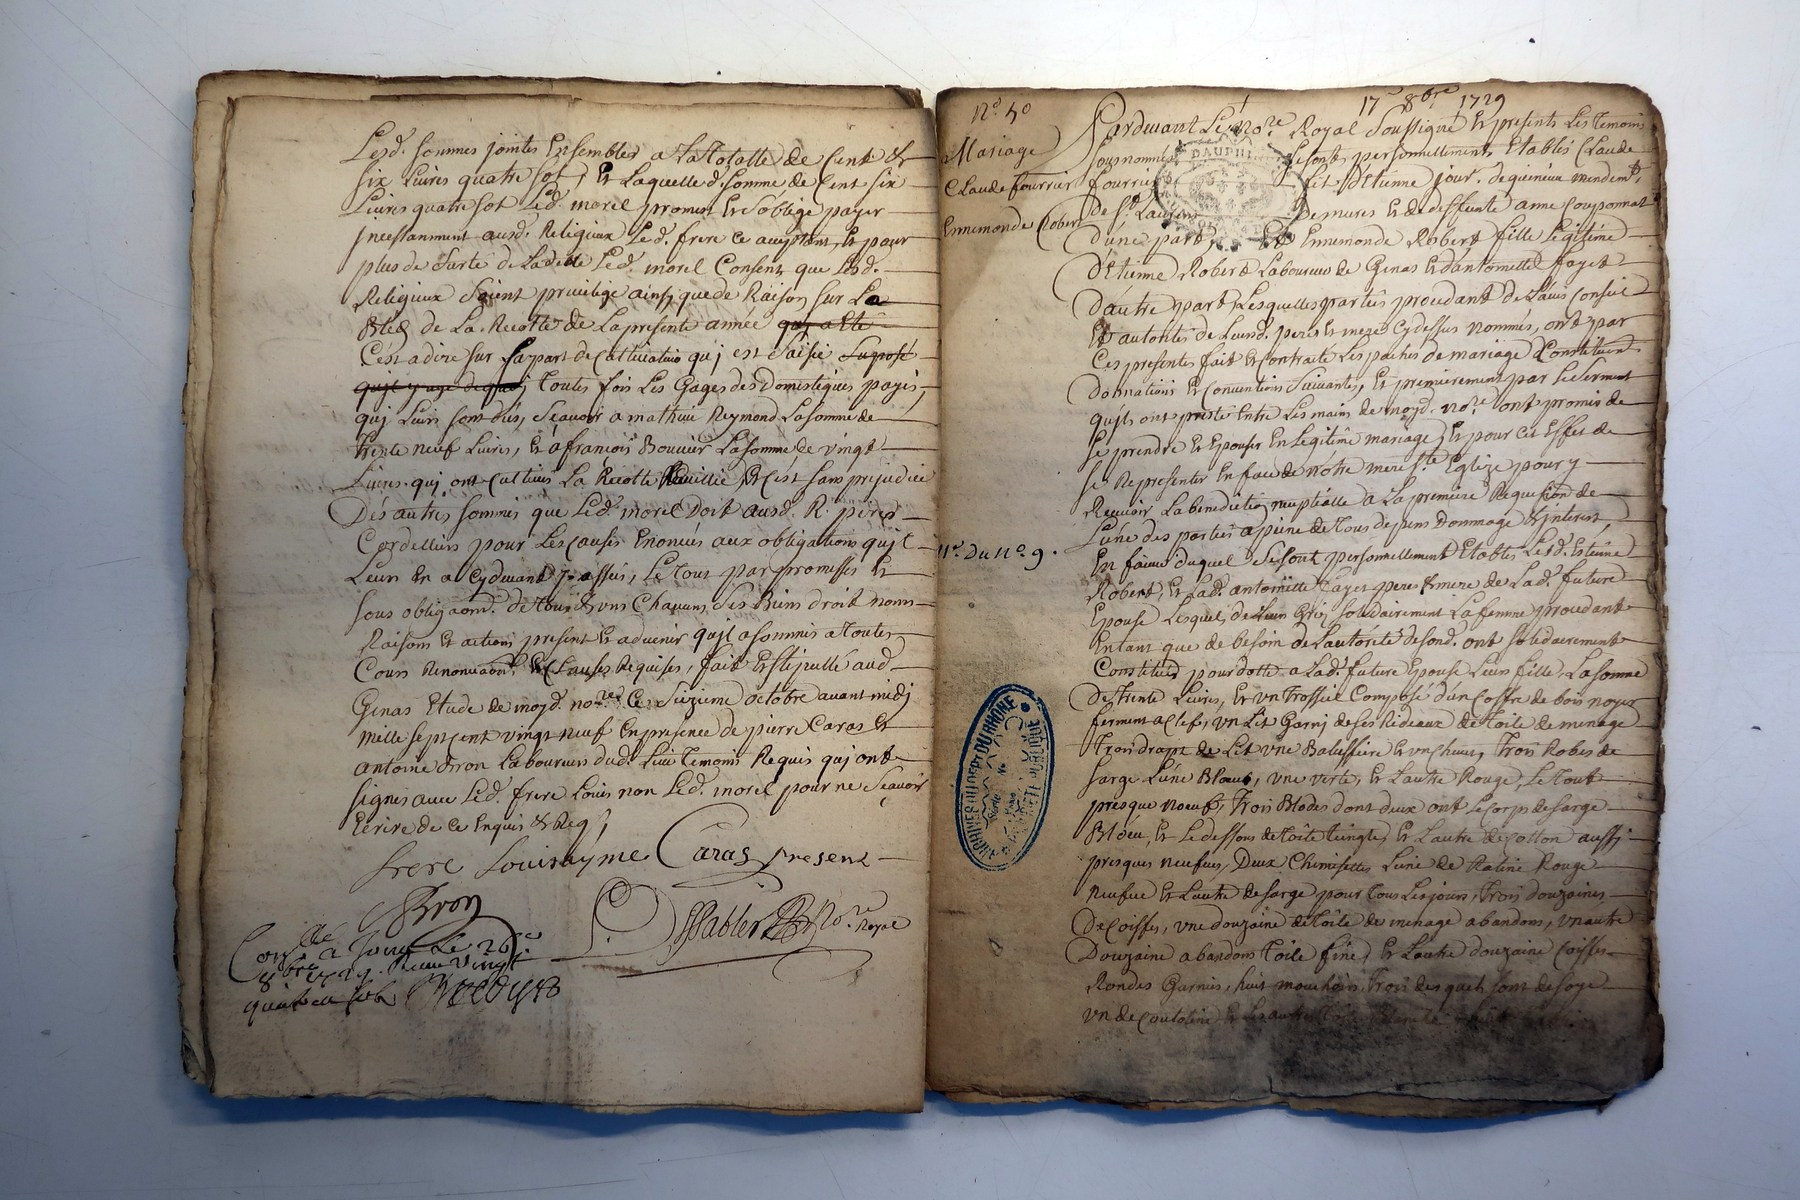 Lesd. sommes jointes Ensembles a La Totalle de Cent &
six Livres quatre sot, Et Laquelle d. somme de Cent six
Livres quatre sot Led. morel promet Et s'oblige payer
Incessamment ausd. Religieux Led. frere ce acceptant, Et pour
plus de surté de Ladette Led. morel Consent que Lesd.
Religieux soient privilege ainsy que de Raison sur La
de La Recolte de La presente année quj a Eté
C'est a dire sur sa part de Cattivation quj est saisie
Toutes fois Les Gages des Domestiques payés,
quj Leurs sont dus, sçavoir a mathieu Reymond La somme de
trente neuf Livres, Et a françois Bouvier La somme de vingt
Livres quj ont Cattivés La Recolte Et C'est sans prejudice
Des autres sommes que Led. morel Doit ausd. R. peres
Cordelliers pour Les causes Enoncées aux obligations qu'jl
Leurs En a Cydevant passées, Le Tout par promesses Et
sous obligaom. de Tous & uns Chacuns ses Biens droit noms
Raisons Et actions present Et advenir qu'jl a soumis a Toutes
Cours Renonciaons. Et Clauses Requises, fait Et stipullé aud.
Genas Etude de moyd. nore. Ce seizieme octobre avant midj
mille sept cent vingt neuf En presence de pierre Caras Et
antoine Bron Laboureurs dud. Lieu Temoins Requis quj ont
signés avec Led. frere Louis non Led. morel pour ne sçavoir
Ecrire de ce Enquis & Req.
frere Louis ayme Caras present
Bron
Nore. Royal
Con. a Le 26e
8bre 1729. Reçu vingt
quatre sols
No. 50
17e 8bre 1729
Mariage
Claude fourrier
Ennemonde Robert
Pardevant Le Nore. Royal soussigné Et presents Les Temoins
sousnommés DAUPHI se sont personnellement Etablis Claude
fourrier fils d'Etienne jour. de quinieux mendemt.
de St. Laurens De mures Et de deffunte anne Couponnat
D'une part, Et Ennemonde Robert fille Legitime
D'etienne Robert Laboureur de Genas Et d'antoinette fayet
D'autre part, Lesquelles parties procedant de L'avis Conseil
Et autorités de Leursd. peres Et meres Cydessus nommés, ont par
Ces presentes fait Et contraité Les paches de mariage Constitution
Donnations Et Conventions suivantes, Et premierement par Le serment
qu'jls ont presté Entre Les mains de moyd. nore. ont promis de
se prendre Et Epouser En Legitime mariage, Et pour cet Effet de
se Representer En face de nôtre mere Ste. Eglize pour y
Recevoir La benediction nuptialle a La premiere Requision de
L'une des parties a peine de Tous depens Dommage & interest,
No. Du No. 9.
En faveur duquel se sont personnellement Etablis Led. Estienne
Robert, Et Lad. antoinette fayet peres & mere de Lad. future
Epouse Lesquels de Leur Gré, solidairement La femme procedant
En tant que de besoin de L'autorité de sond. ont solidairement
Constitués pour dotte a Lad. future Epouse Leur fille La somme
De trente Livres, Et un Trossiel Composé d'un Coffre de bois noyer
fermant a Clefs, un Lit Garnj de ses Rideaux de Toile de menage
Trois draps de Lit une Balessiere Et un Chevet, Trois Robes de
sarge L'une Bleue, une verte, Et L'autre Rouge, Le tout
presque noeuf, Trois Blodes dont deux ont Le corps de sarge
Bloeu, Et Le dessous de Toile Teingte, Et L'autre de Cotton aussj
presques neufves, Deux Chemisettes L'une de Ratine Rouge
neufve Et L'autre de sarge pour Tous Les jours, Trois douzaines
De Coiffes, une douzaine de Toile de menage a bandons, un autre
Douzaine a bandons Toile fine, Et L'autre douzaine Coiffes
Rondes Garnies, huit mouchoirs Trois desquels sont de soye
un de Et Les autres Toile
ARCHIVES DU DEPT DU RHÔNE